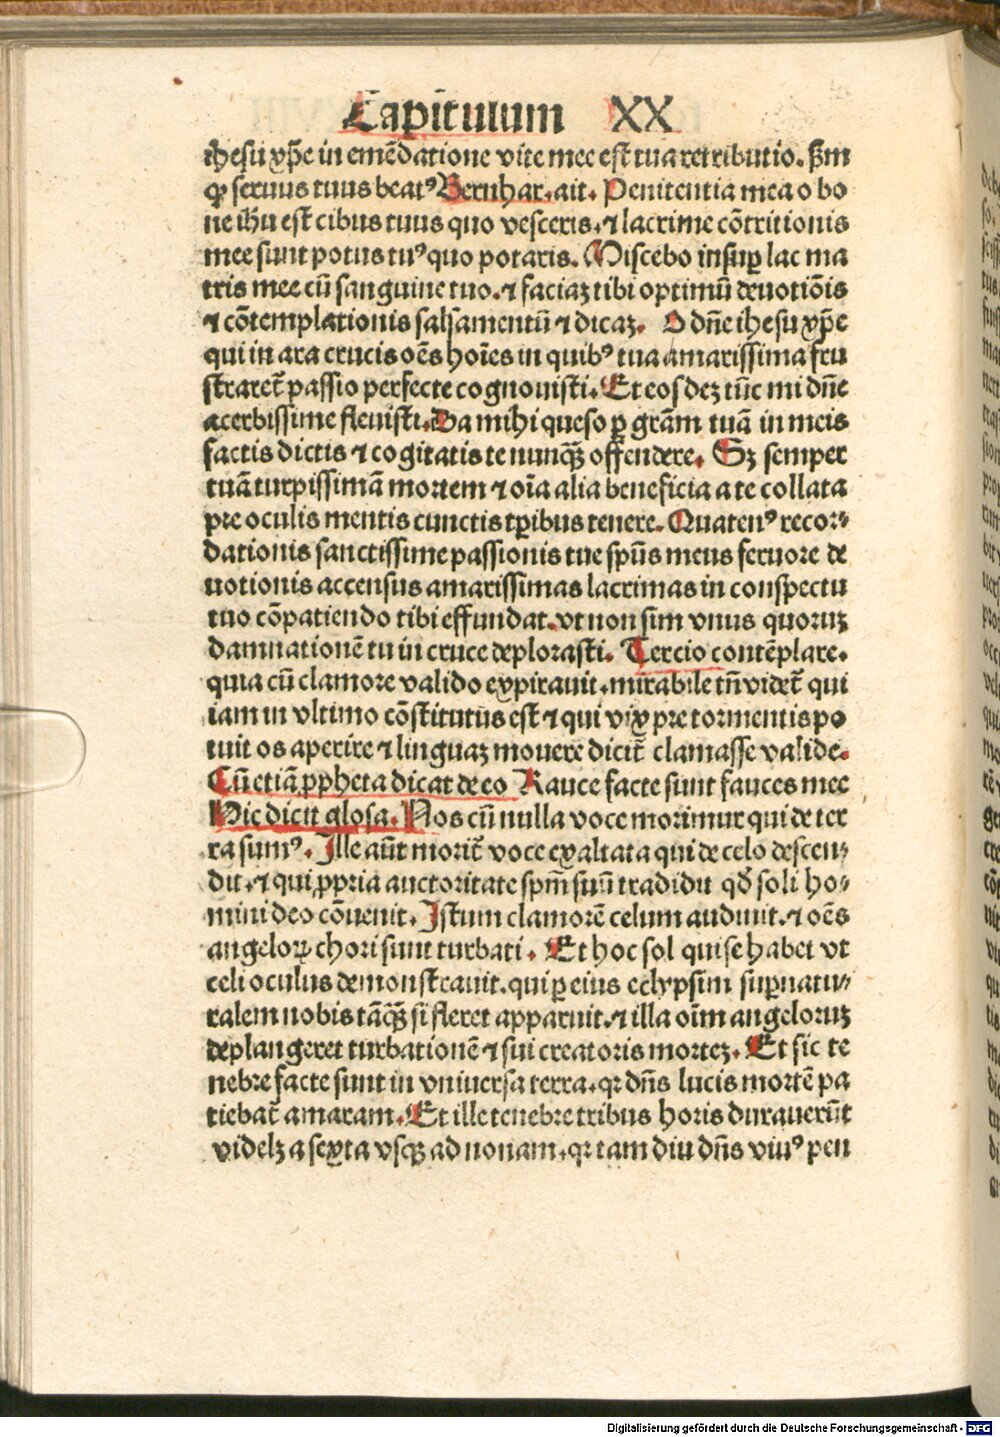 Capitulum XX
ihesu xp̄e in emēdatione vite mee est tua retributio. Sꝫm
ꝙ seruus tuus beatꝰ Bernhar. ait. Penitentia mea o bo
ne ihū est cibus tuus quo vesceris. ⁊ lacrime cōtritionis
mee sunt potus tuꝰ quo potaris. Miscebo insuꝑ lac ma
tris mee cū sanguine tuo. ⁊ faciaꝫ tibi optimū deuotiōis
⁊ cōtemplationis salsamentū ⁊ dicaꝫ. O dn̄e ihesu xp̄e
qui in ara crucis oēs hoīes in quibꝰ tua amarissima fru
straret̄ passio perfecte cognouisti. Et eosdeꝫ tūc mi dn̄e
acerbissime fleuisti. Da mihi queso ꝑ grām tuā in meis
factis dictis ⁊ cogitatis te nunqꝫ̄ offendere. Sꝫ semper
tuā turpissimā mortem ⁊ oīa alia beneficia a te collata
pre oculis mentis cunctis tꝑibus tenere. Quatenꝰ recor⸗
dationis sanctissime passionis tue spūs meus feruore de
uotionis accensus amarissimas lacrimas in conspectu
tuo cōpatiendo tibi effundat. vt non sim vnus quoruꝫ
damnationē tu in cruce deplorasti. Tercio contēplare.
quia cū clamore valido expirauit. mirabile tn̄ videt̄ qui
iam in vltimo cōstitutus est ⁊ qui vix pre tormentis po
tuit os aperire ⁊ linguaꝫ mouere dicit̄ clamasse valide.
Cū etiā ꝓpheta dicat de eo Rauce facte sunt fauces mee
Hic dicit glosa. Nos cū nulla voce morimur qui de ter
ra sumꝰ. Ille aūt morit̄ voce exaltata qui de celo descen⸗
dit. ⁊ qui ꝓpria auctoritate spm̄ suū tradidit qđ soli ho⸗
mini deo cōuenit. Istum clamorē celum audiuit. ⁊ oēs
angeloꝝ chori sunt turbati. Et hoc sol qui se habet vt
celi oculus demonstrauit. qui ꝑ eius eclypsim suꝑnatu⸗
ralem nobis tāqꝫ̄ si fleret apparuit. ⁊ illa oīm angeloruꝫ
deplangeret turbationē ⁊ sui creatoris morteꝫ. Et sic te
nebre facte sunt in vniuersa terra. qꝛ dn̄s lucis mortē pa
tiebat̄ amaram. Et ille tenebre tribus horis durauerūt
videlꝫ a sexta vsqꝫ ad nonam. qꝛ tam diu dn̄s viuꝰ pen
Digitalisierung gefördert durch die Deutsche Forschungsgemeinschaft - DFG